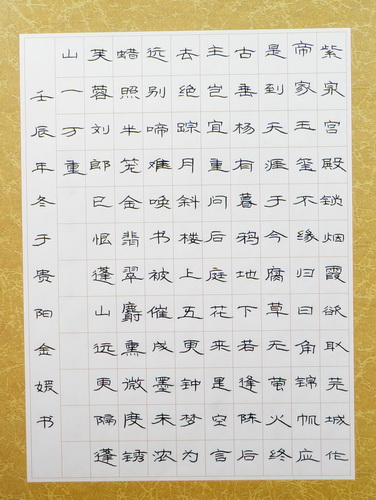 紫泉宫殿锁烟霞欲取芜城作
帝家玉玺不缘归日角锦帆应
是到天涯于今腐草无萤火终
古垂杨有暮鸦地下若逢陈后
主岂宜重问后庭花来是空言
去绝踪月斜楼上五更钟梦为
远别啼难唤书被催成墨未浓
蜡照半笼金翡翠麝熏微度绣
芙蓉刘郎已恨蓬山远更隔蓬
山一万重
壬辰年冬于贵阳金媛书